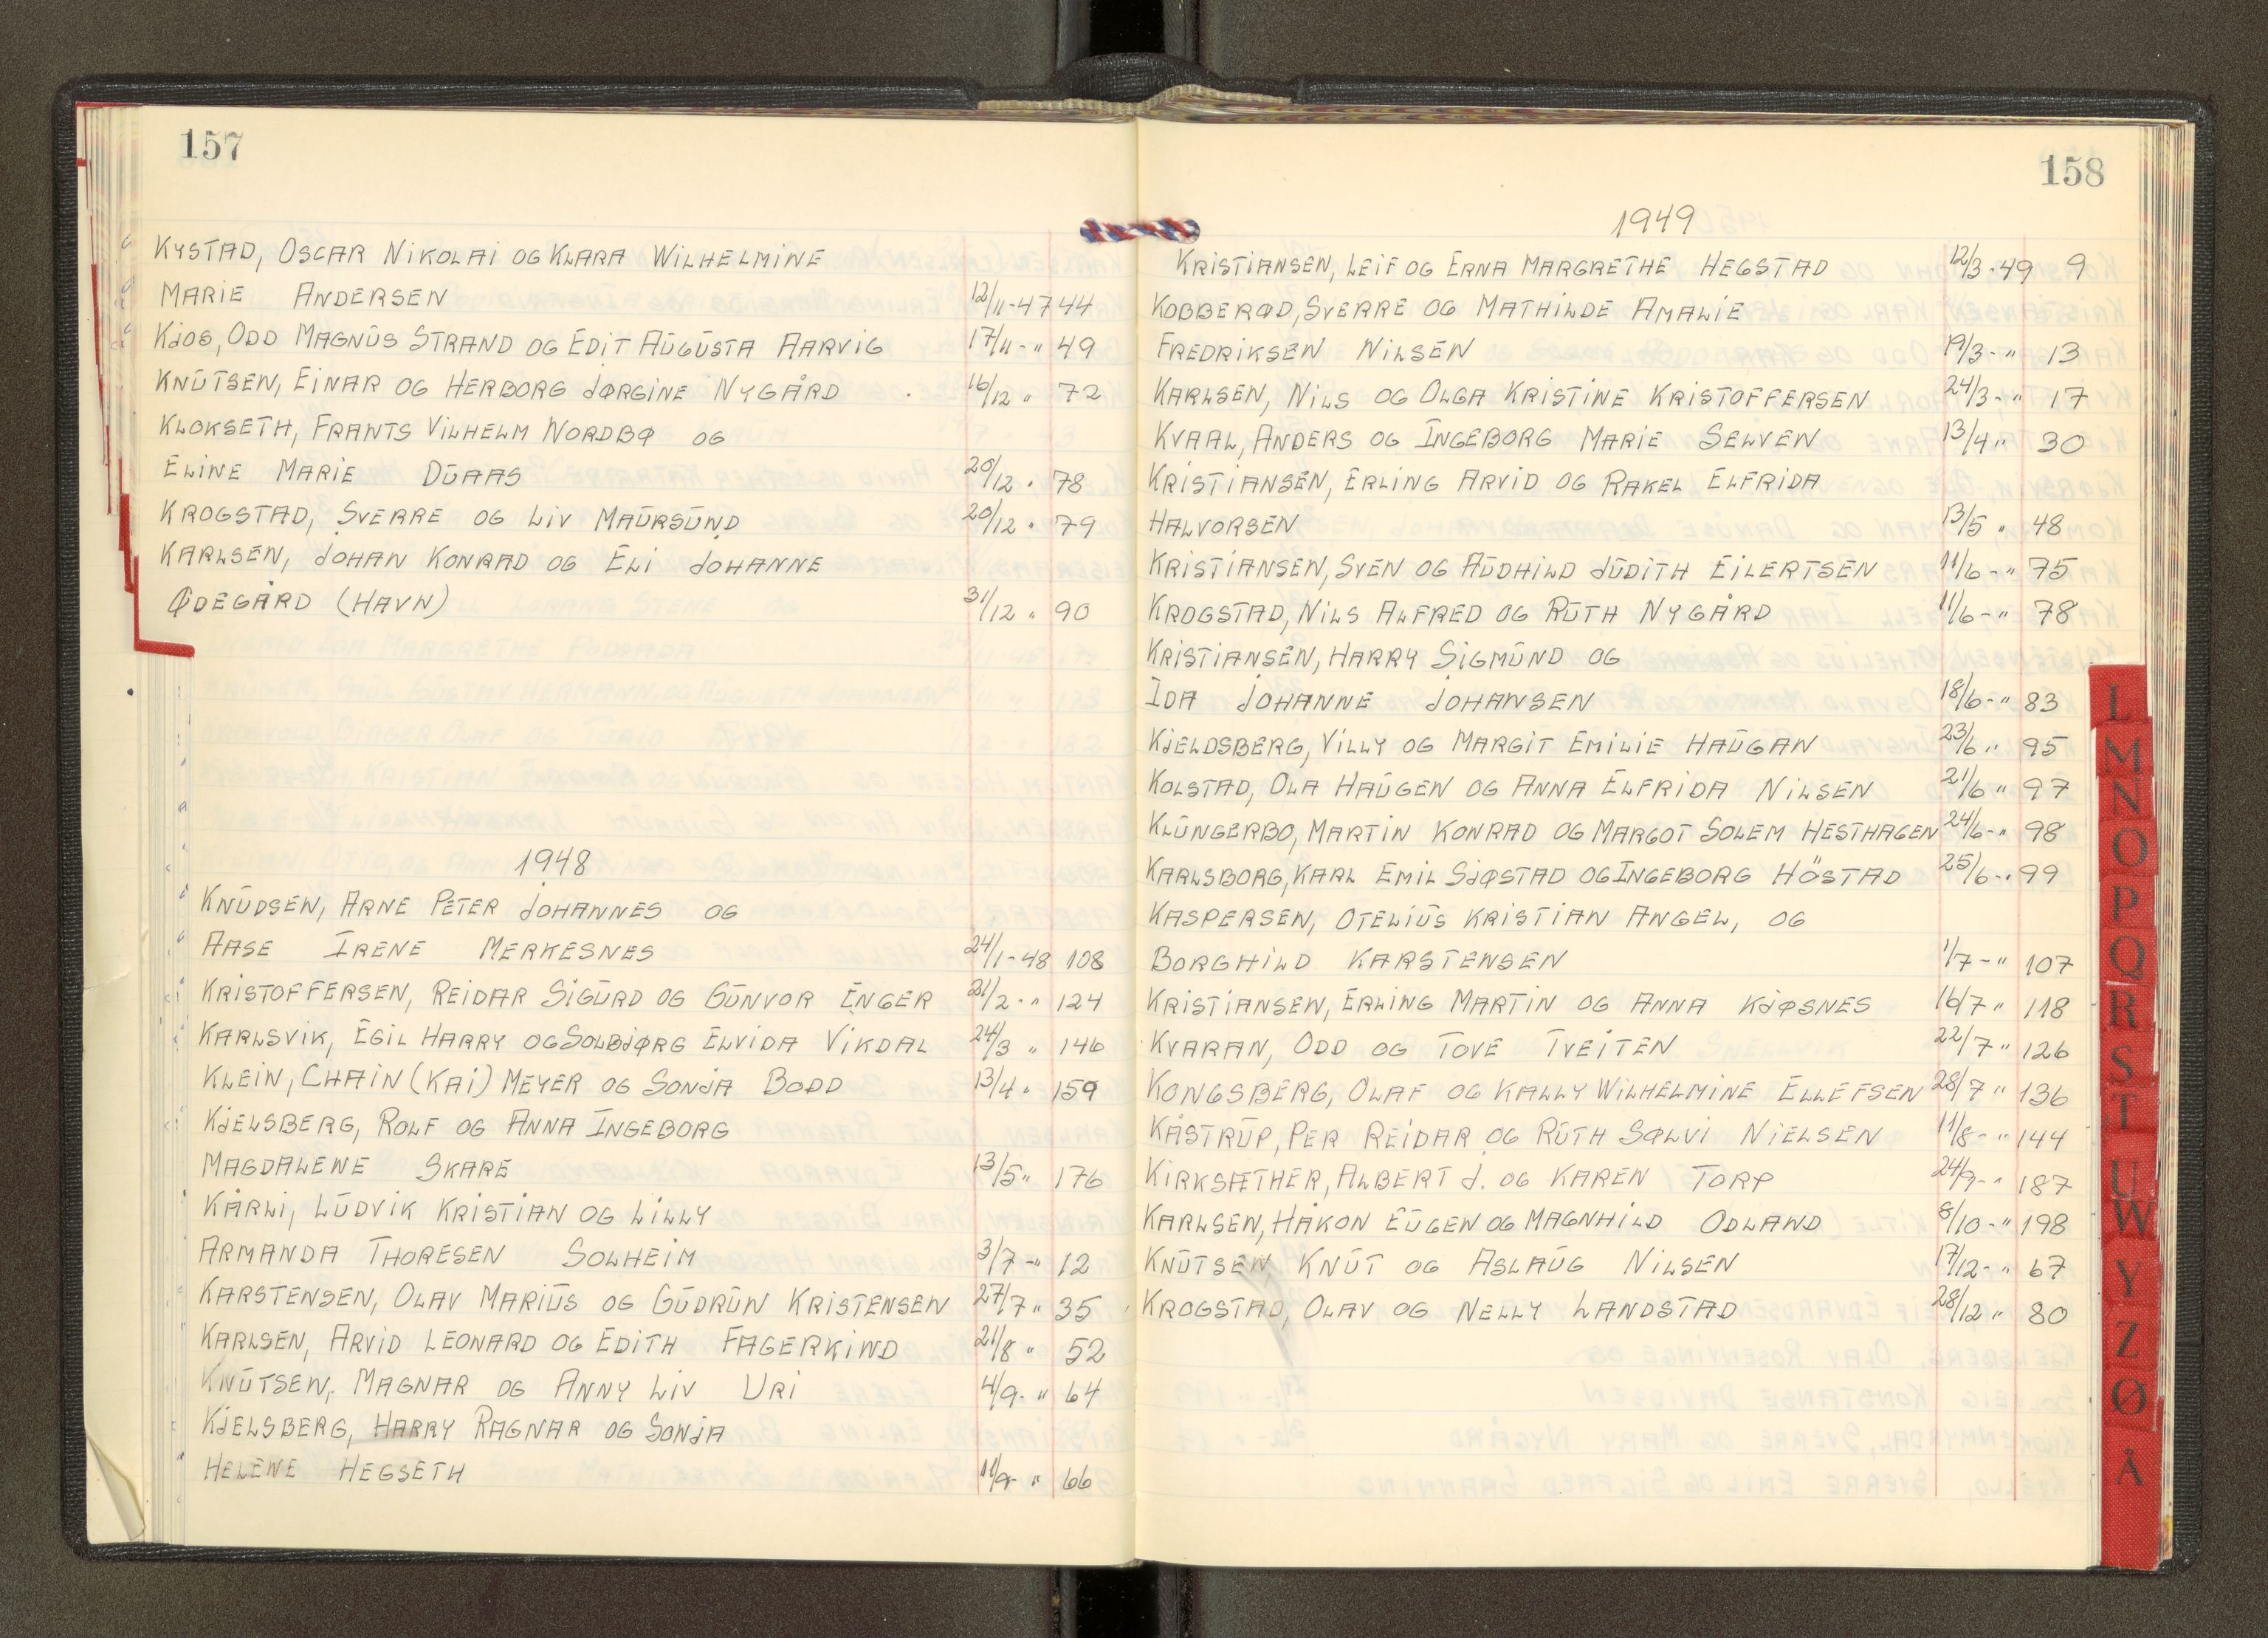 157
KYSTAD, OSCAR NIKOLAI OG KLARA WILHELMINE
MARIE ANDERSEN 12/11-47 44
KJOS, ODD MAGNUS STRAND OG EDIT AUGUSTA AARVIG 17/11-" 49
KNUTSEN, EINAR OG HERBORG JØRGINE NYGÅRD 16/12 " 72
KLOKSETH, FRANTS VILHELM NORDBØ OG
ELINE MARIE DUAAS 20/12 " 78
KROGSTAD, SVERRE OG LIV MAURSUND 20/12 " 79
KARLSEN, JOHAN KONRAD OG ELI JOHANNE
ØDEGÅRD (HAVN) 31/12 " 90
1948
KNUDSEN, ARNE PETER JOHANNES OG
AASE IRENE MERKESNES 24/1-48 108
KRISTOFFERSEN, REIDAR SIGURD OG GUNVOR ENGER 21/2-" 124
KARLSVIK, EGIL HARRY OG SOLBJØRG ELVIDA VIKDAL 24/3 " 146
KLEIN, CHAIN (KAI) MEYER OG SONJA BODD 13/4 " 159
KJELSBERG, ROLF OG ANNA INGEBORG
MAGDALENE SKARE 13/5 " 176
KÅRLI, LUDVIK KRISTIAN OG LILLY
ARMANDA THORESEN SOLHEIM 3/7-" 12
KARSTENSEN, OLAV MARIUS OG GUDRUN KRISTENSEN 27/7 " 35
KARLSEN, ARVID LEONARD OG EDITH FAGERKIND 21/8 " 52
KNUTSEN, MAGNAR OG ANNY LIV URI 4/9-" 64
KJELSBERG, HARRY RAGNAR OG SONJA
HELENE HEGSETH 11/9-" 66
158
1949
KRISTIANSEN, LEIF OG ERNA MARGRETHE HEGSTAD 12/3-49 9
KOBBERØD, SVERRE OG MATHILDE AMALIE
FREDRIKSEN NILSEN 19/3-" 13
KARLSEN, NILS OG OLGA KRISTINE KRISTOFFERSEN 24/3-" 17
KVAAL, ANDERS OG INGEBORG MARIE SELVEN 13/4 " 30
KRISTIANSEN, ERLING ARVID OG RAKEL ELFRIDA
HALVORSEN 13/5 " 48
KRISTIANSEN, SVEN OG AUDHILD JUDITH EILERTSEN 11/6-" 75
KROGSTAD, NILS ALFRED OG RUTH NYGÅRD 11/6-" 78
KRISTIANSEN, HARRY SIGMUND OG
IDA JOHANNE JOHANSEN 18/6-" 83
KJELDSBERG, VILLY OG MARGIT EMILIE HAUGAN 23/6 " 95
KOLSTAD, OLA HAUGEN OG ANNA ELFRIDA NILSEN 21/6 " 97
KLUNGERBO, MARTIN KONRAD OG MARGOT SOLEM HESTHAGEN 24/6-" 98
KARLSBORG, KARL EMIL SJØSTAD OG INGEBORG HÖSTAD 25/6-" 99
KASPERSEN, OTELIUS KRISTIAN ANGEL, OG
BORGHILD KARSTENSEN 1/7-" 107
KRISTIANSEN, ERLING MARTIN OG ANNA KJØSNES 16/7 " 118
KVARAN, ODD OG TOVE TVEITEN 22/7 " 126
KONGSBERG, OLAF OG KALLY WILHELMINE ELLEFSEN 28/7 " 136
KÅSTRUP, PER REIDAR OG RUTH SØLVI NIELSEN 11/8-" 144
KIRKSÆTHER, ALBERT J. OG KAREN TORP 24/9-" 187
KARLSEN, HÅKON EUGEN OG MAGNHILD ODLAND 8/10-" 198
KNUTSEN KNUT OG ASLAUG NILSEN 17/12-" 67
KROGSTAD, OLAV OG NELLY LANDSTAD 28/12 " 80
L
M
N
O
P
Q
R
S
T
U
W
Y
Z
Ø
Å